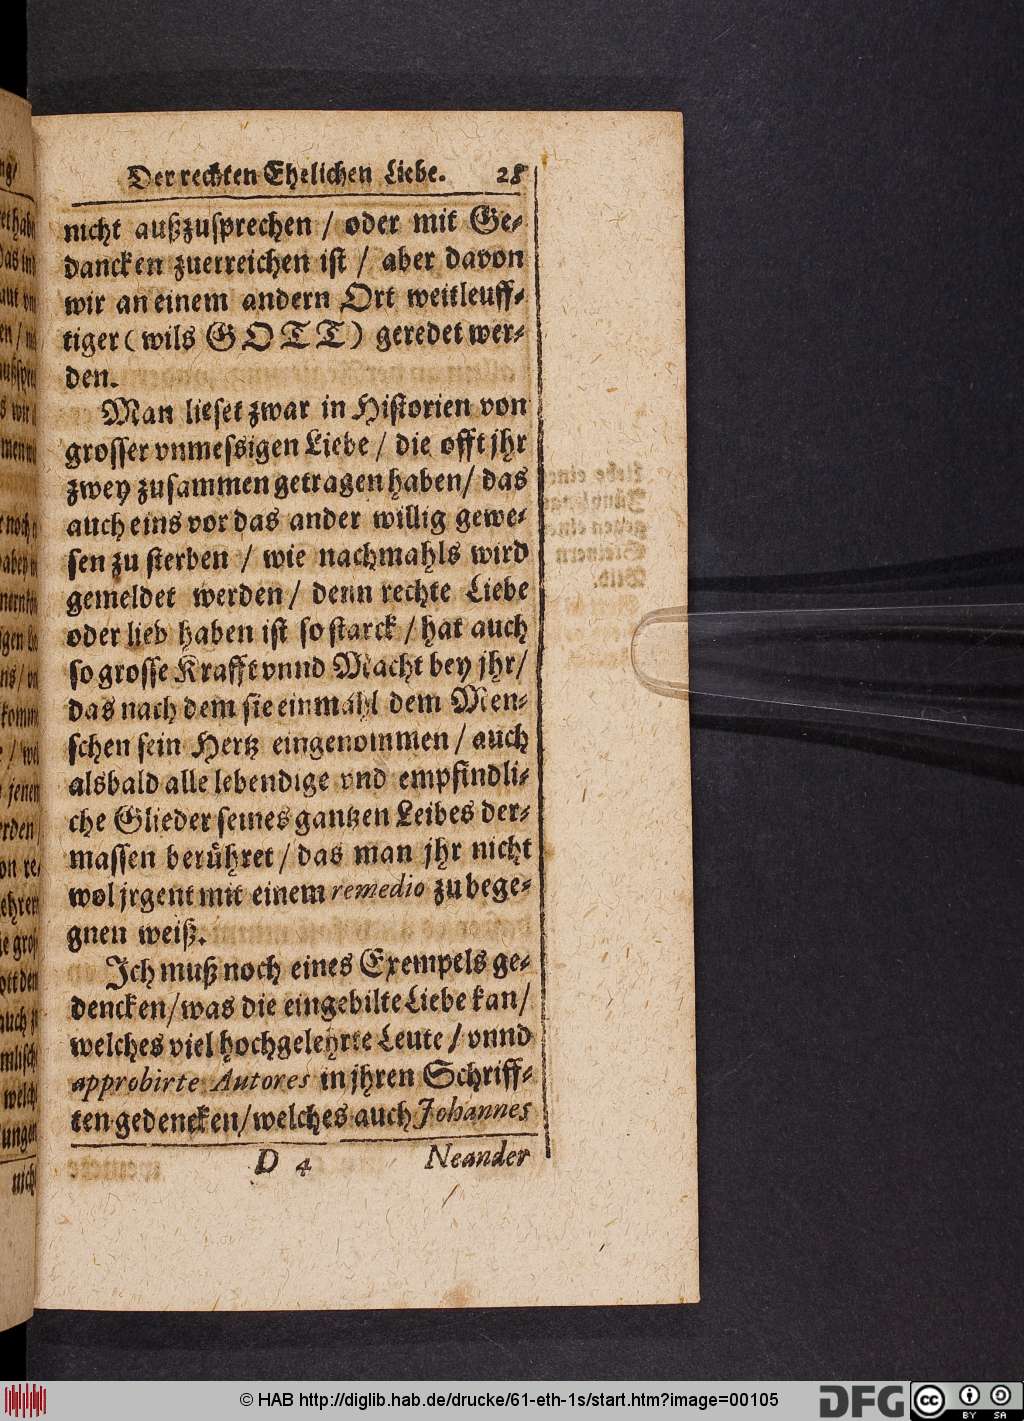 Der rechten Ehelichen Liebe. 28
nicht außzusprechen / oder mit Ge-
dancken zuerreichen ist / aber davon
wir an einem andern Ort weitleuff-
tiger (wils GOTT) geredet wer-
den.
Man lieset zwar in Historien von
grosser vnmessigen Liebe / die offt jhr
zwey zusammen getragen haben / das
auch eins vor das ander willig gewe-
sen zu sterben / wie nachmahls wird
gemeldet werden / denn rechte Liebe
oder lieb haben ist so starck / hat auch
so grosse Krafft vnnd Macht bey jhr /
das nach dem sie einmahl dem Men-
schen sein Hertz eingenommen / auch
alsbald alle lebendige vnd empfindli-
che Glieder seines gantzen Leibes der-
massen berühret / das man jhr nicht
wol jrgent mit einem remedio zu bege-
gnen weiß.
Ich muß noch eines Exempels ge-
dencken / was die eingebilte Liebe kan /
welches viel hochgelehrte Leute / vnnd
approbirte Autores in jhren Schriff-
ten gedencken / welches auch Johannes
D 4 Neander
© HAB http://diglib.hab.de/drucke/61-eth-1s/start.htm?image=00105
DFG
cc BY SA